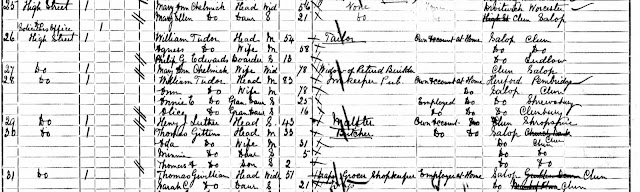 25 High Street 1 Mary Ann Chelmick Head Wid 56 None Worcester
Mary Ellen Do Daur S 21 Do Clun Salop
Solicitors Office
26 High Street 1 William Tudor Head M 54 Tailor Own account at Home Salop Clun
Agnes Do Wife M 58 Do Do
Philip G Edwards Boarder S 13 Do Ludlow
27 Do 1 Mary Ann Chelmick Wid 78 Widow of Retired Builder Clun Salop
28 Do 1 William Tudor Head M 83 Innkeeper Pub. Own account at Home Hereford Pembridge
Ann Do Wife M 78 Do Salop Clun
Annie E Do Gran Daur S 25 Employed Do Do Shrewsbury
Alice Do Gran Daur S 16 Do Do Clunbury
29 Do 1 Mary J Luther Head S 43 Maltster Own account Do Clun Shropshire
30 Do 1 Thomas Gittins Head M 33 Butcher Do Do Salop Clun
Ida Do Wife M 31 Do Clun
Minnie Do Daur S 5 Do Do
Thomas Do Son S 2 Do Do
31 Do 1 Thomas Gwilliam Head Wid 51 Grocer Shopkeeper Employer at Home Salop Clun
Sarah C Do Daur S 21 Do Clun